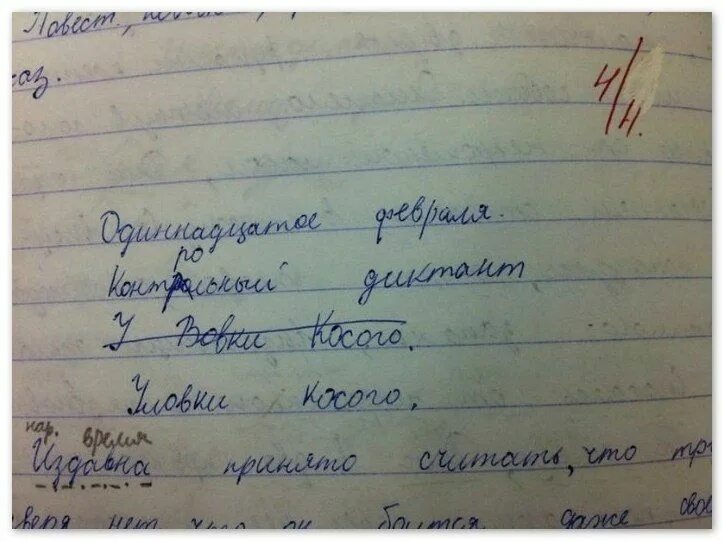 Повест.,
каз.
4/4.
Одиннадцатое февраля.
ро
Контрольный диктант
У Вовки Косого.
Уловки косого.
нар. время
Издавна принято считать, что тр
зверя нет, что он боится даже свое